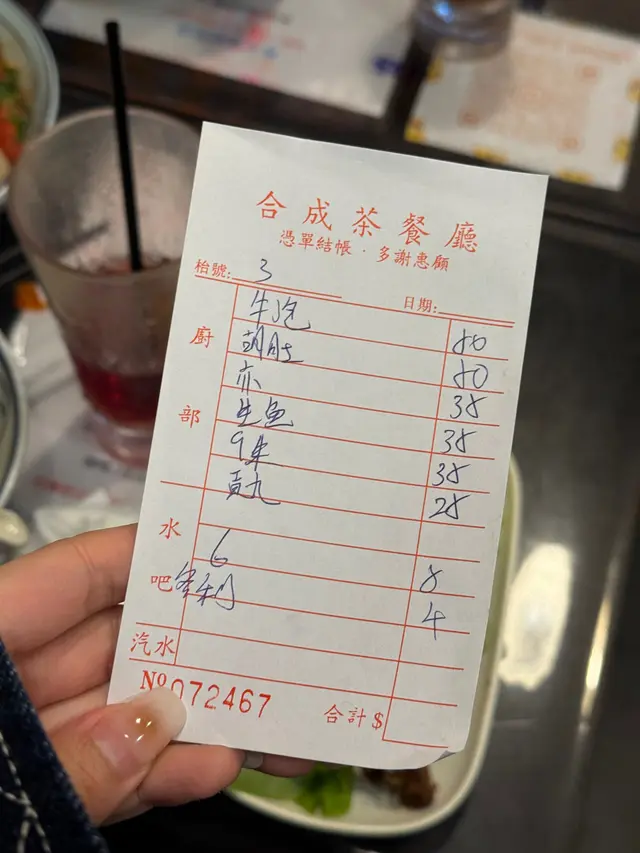 合成茶餐廳
憑單結帳．多謝惠顧
枱號: 3 日期:
廚部
牛泡 80
胡肚 80
亦 38
生魚 38
9朱 38
貢丸 28
水吧
6 8
4
汽水
Nº 072467 合計$